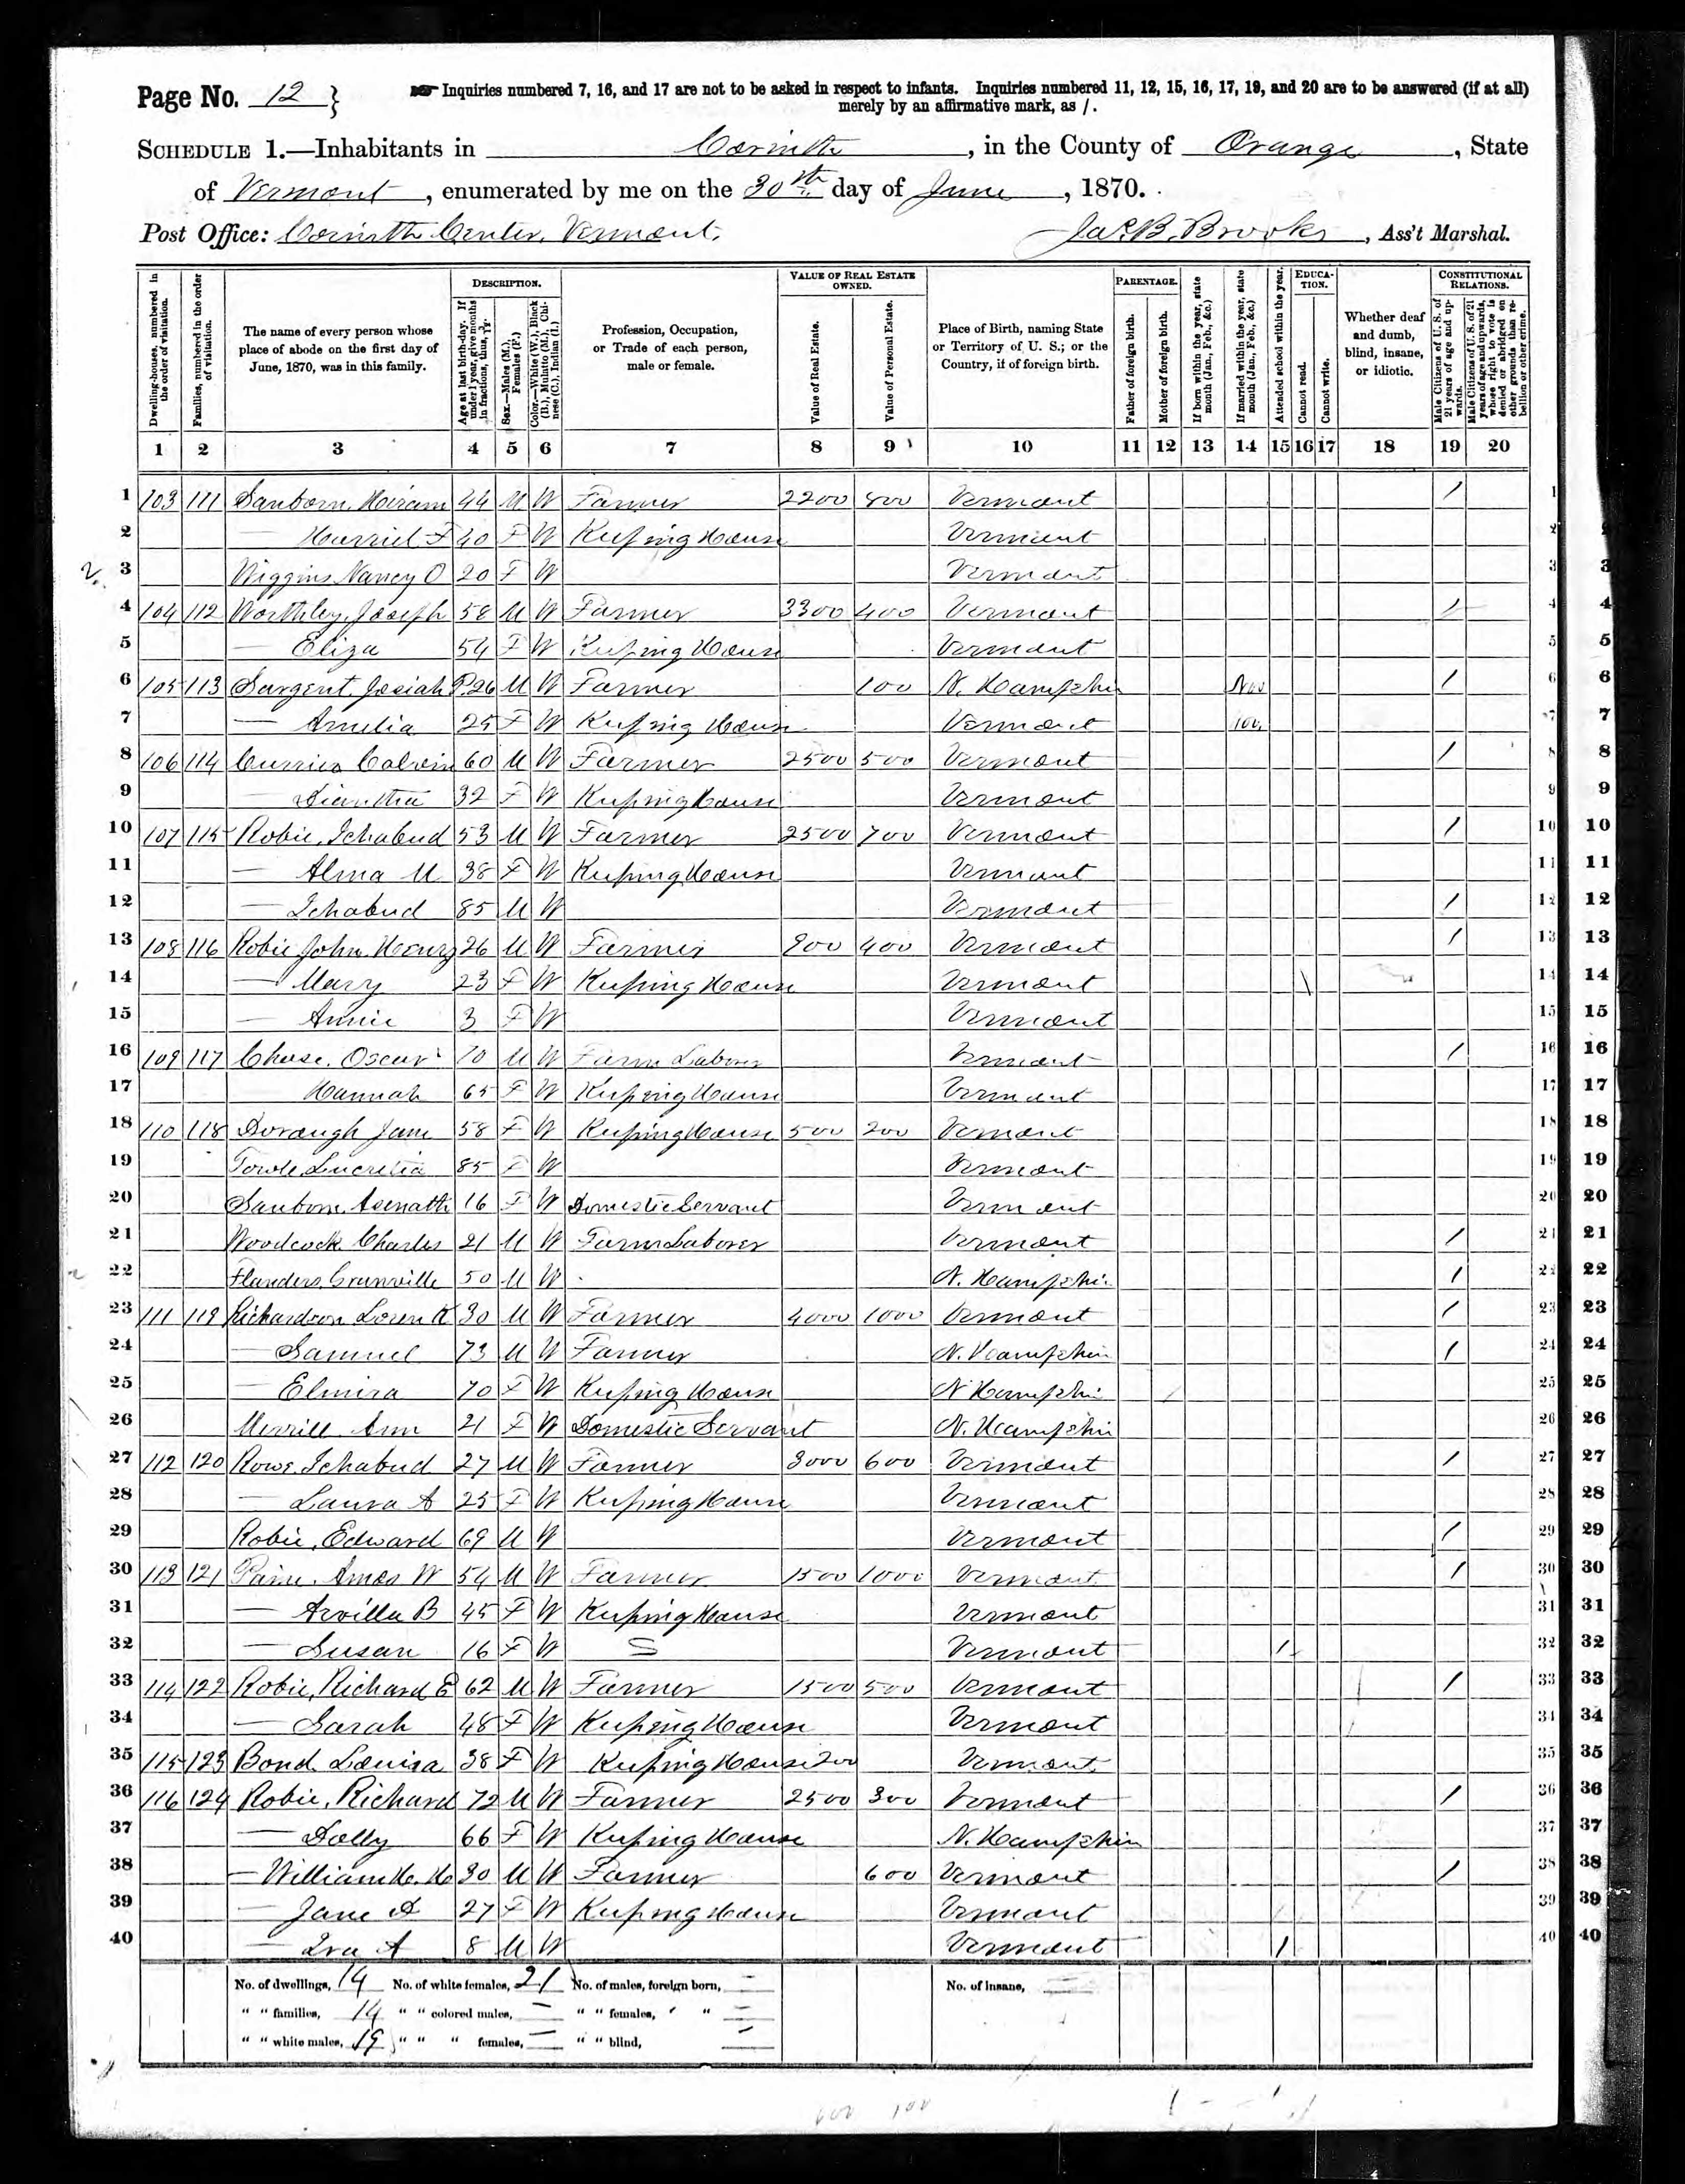 Page No. 12 } Inquiries numbered 7, 16, and 17 are not to be asked in respect to infants. Inquiries numbered 11, 12, 15, 16, 17, 19, and 20 are to be answered (if at all)
merely by an affirmative mark, as /.
SCHEDULE 1.—Inhabitants in Corinth, in the County of Orange, State
of Vermont, enumerated by me on the 30th day of June, 1870.
Post Office: Corinth Center, Vermont. Jas. B. Brooks, Ass't Marshal.
Dwelling-houses, numbered in the order of visitation.
Families, numbered in the order of visitation.
The name of every person whose place of abode on the first day of June, 1870, was in this family.
DESCRIPTION.
Age at last birth-day. If under 1 year, give months in fractions, thus, 3/12.
Sex.—Males (M.), Females (F.)
Color.—White (W.), Black (B.), Mulatto (M.), Chinese (C.), Indian (I.)
Profession, Occupation, or Trade of each person, male or female.
VALUE OF REAL ESTATE OWNED.
Value of Real Estate.
Value of Personal Estate.
Place of Birth, naming State or Territory of U. S.; or the Country, if of foreign birth.
PARENTAGE.
Father of foreign birth.
Mother of foreign birth.
If born within the year, state month (Jan., Feb., &c.)
If married within the year, state month (Jan., Feb., &c.)
Attended school within the year.
EDUCATION.
Cannot read.
Cannot write.
Whether deaf and dumb, blind, insane, or idiotic.
CONSTITUTIONAL RELATIONS.
Male Citizens of U. S. of 21 years of age and upwards.
Male Citizens of U. S. of 21 years of age and upwards, whose right to vote is denied or abridged on other grounds than rebellion or other crime.
1 2 3 4 5 6 7 8 9 10 11 12 13 14 15 16 17 18 19 20
1 103 111 Sanborn, Hiram 44 M W Farmer 2200 800 Vermont / 1
2 — Harriet F 40 F W Keeping House Vermont 2
3 Wiggins, Nancy O 20 F W Vermont 3 3
4 104 112 Worthley, Joseph 58 M W Farmer 3300 400 Vermont / 4 4
5 — Eliza 54 F W Keeping House Vermont 5 5
6 105 113 Sargent, Josiah P. 26 M W Farmer 100 N. Hampshire / 6 6
7 — Amelia 25 F W Keeping House Vermont 7 7
8 106 114 Currier Calvin 60 M W Farmer 2500 500 Vermont / 8 8
9 — Diantha 32 F W Keeping House Vermont 9 9
10 107 115 Robie, Ichabud 53 M W Farmer 2500 700 Vermont / 10 10
11 — Alma M 38 F W Keeping House Vermont 11 11
12 — Ichabud 85 M W Vermont / 12 12
13 108 116 Robie John Henry 26 M W Farmer 900 400 Vermont / 13 13
14 — Mary 23 F W Keeping House Vermont \ 14 14
15 — Annie 3 F W Vermont 15 15
16 109 117 Chase, Oscar 70 M W Farm Laborer Vermont / 16 16
17 Hannah 65 F W Keeping House Vermont 17 17
18 110 118 Jane 58 F W Keeping House 500 200 Vermont 18 18
19 Towle Lucretia 85 F W Vermont 19 19
20 Sanborn, Asenath 16 F W Domestic Servant Vermont 20 20
21 Woodcock Charles 21 M W Farm Laborer Vermont / 21 21
22 Flanders, Granville 50 M W N. Hampshire / 22 22
23 111 119 Richardson Loren K 30 M W Farmer 4000 1000 Vermont / 23 23
24 — Samuel 73 M W Farmer N. Hampshire / 24 24
25 — Elmira 70 F W Keeping House N Hampshire 25 25
26 Merrill Ann 21 F W Domestic Servant N. Hampshire 26 26
27 112 120 Rowe, Ichabud 27 M W Farmer 3000 600 Vermont / 27 27
28 — Laura A 25 F W Keeping House Vermont 28 28
29 Robie, Edward 69 M W Vermont / 29 29
30 113 121 Paine, Amos W 54 M W Farmer 1500 1000 Vermont / 30 30
31 — Arvilla B 45 F W Keeping House Vermont 31 31
32 — Susan 16 F W Vermont / 32 32
33 114 122 Robie, Richard E 62 M W Farmer 1500 500 Vermont / 33 33
34 — Sarah 48 F W Keeping House Vermont 34 34
35 115 123 Bond Louisa 38 F W Keeping House 200 Vermont 35 35
36 116 124 Robie, Richard 72 M W Farmer 2500 300 Vermont / 36 36
37 — Dolly 66 F W Keeping House N. Hampshire 37 37
38 — William H. H. 30 M W Farmer 600 Vermont / 38 38
39 — Jane A 27 F W Keeping House Vermont 39 39
40 — Ira A 8 M W Vermont / 40 40
No. of dwellings, 14 No. of white females, 21 No. of males, foreign born, — No. of insane, —
" " families, 14 " " colored males, — " " females, " " —
" " white males, 19 " " " females, — " " blind, —